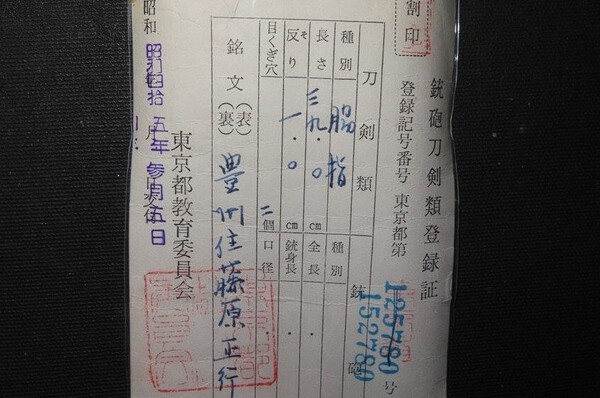 割印
銃砲刀剣類登録証
登録記号番号 東京都第 125780 号
152780
刀剣類
銃砲
種別 脇指
種別
長さ 三九.0 cm
全長 .
反り そ 一.0 cm
銃身長 .
目くぎ穴 二個
口径 .
銘文 (表) 豊州住藤原正行
(裏)
東京都教育委員会
昭和
昭和四拾五年参月五日